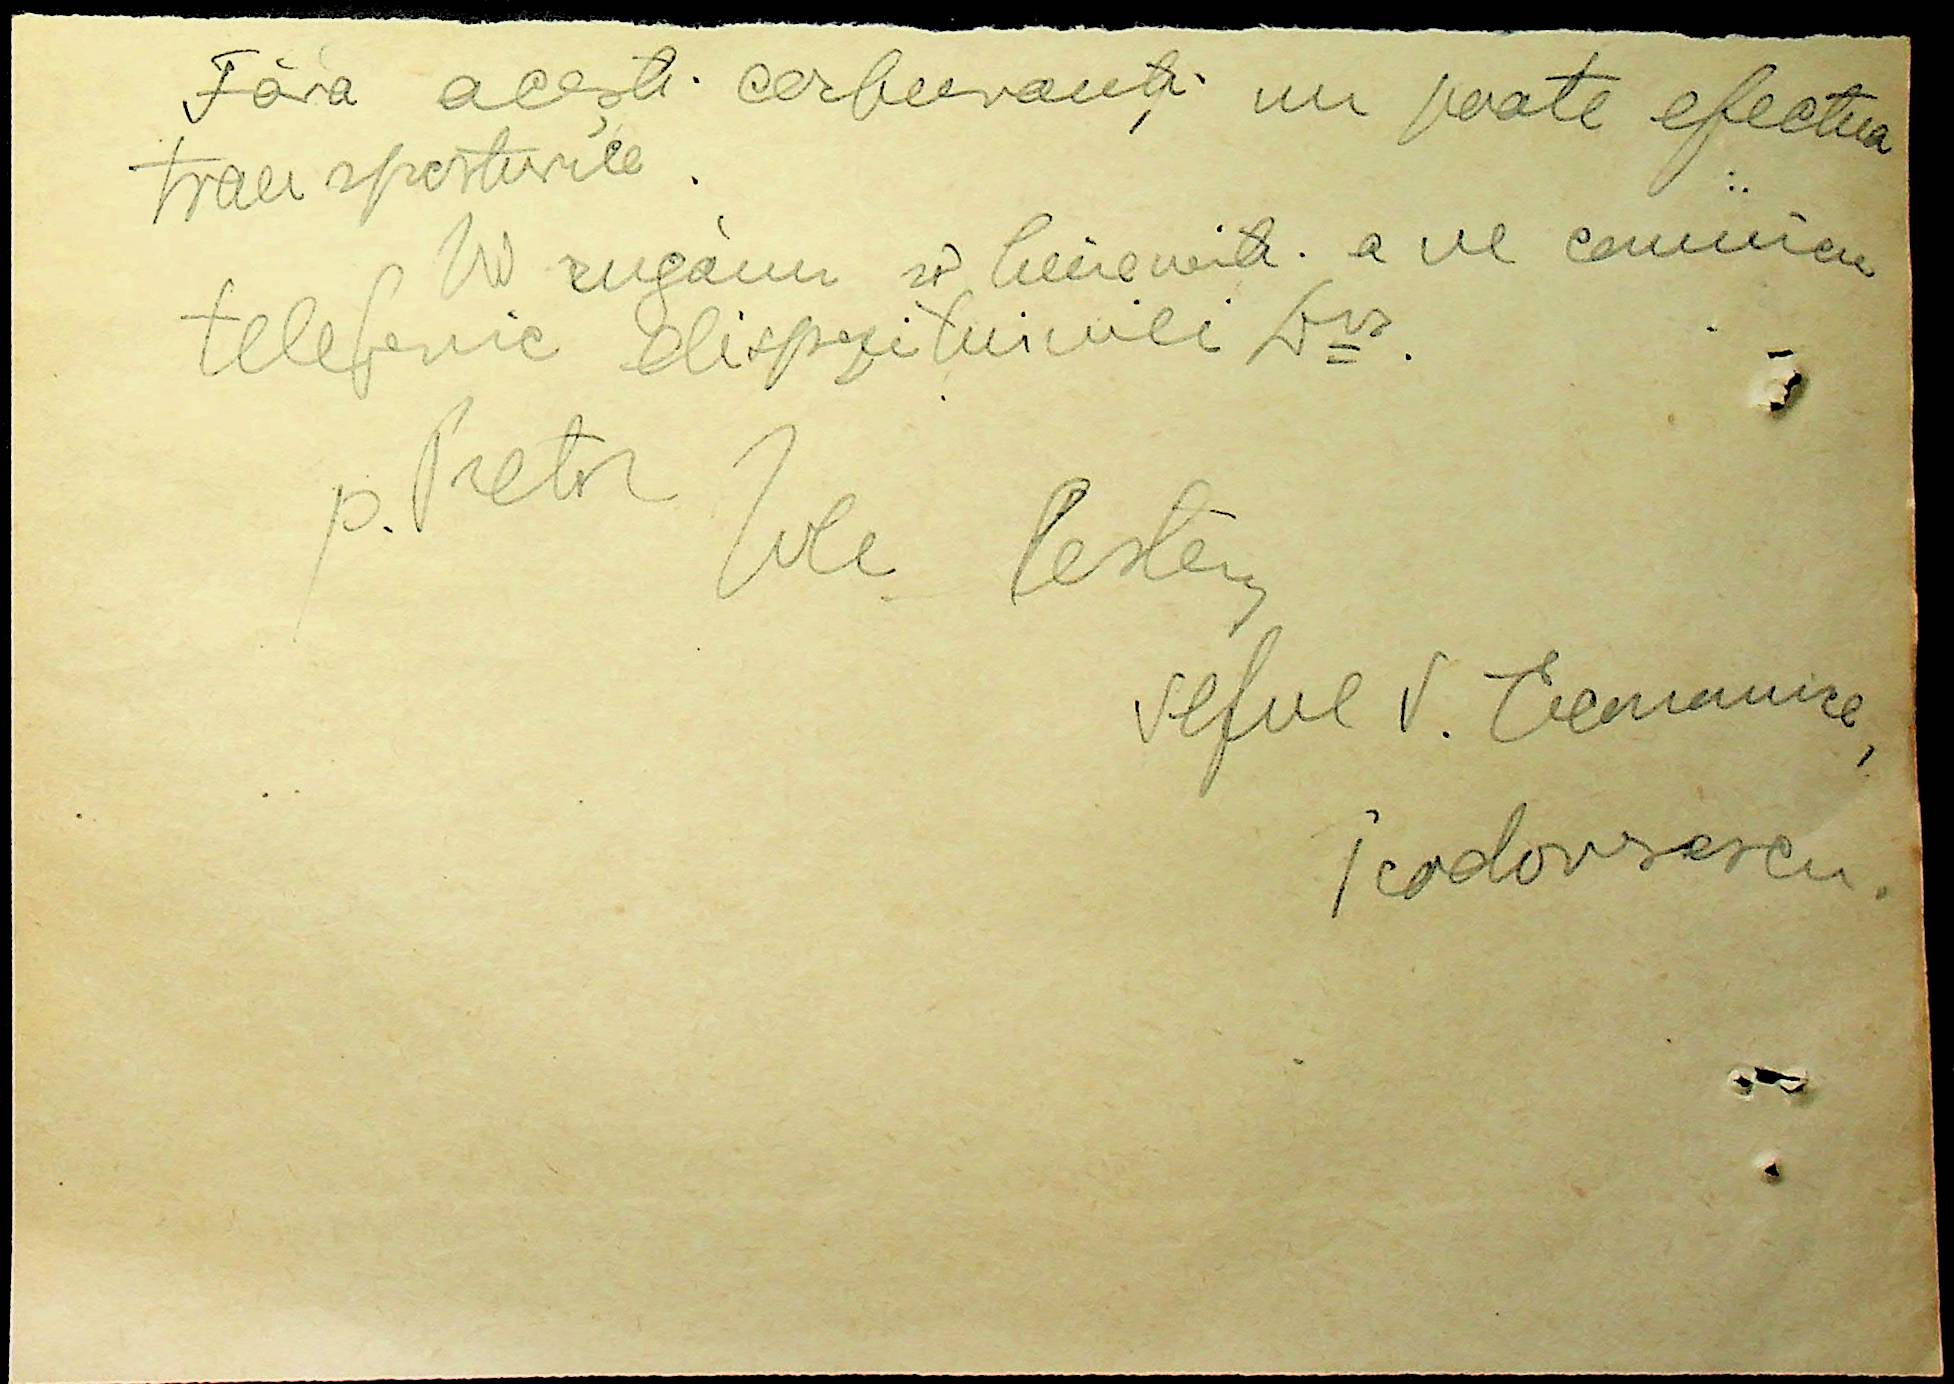 Fără acești carburanți nu poate efectua
transporturile.
Vă rugăm să binevoiți a ne comunica
telefonic dispozițiunile Dvs.
p. Pretor
Șeful S. Economice,
Teodorescu.